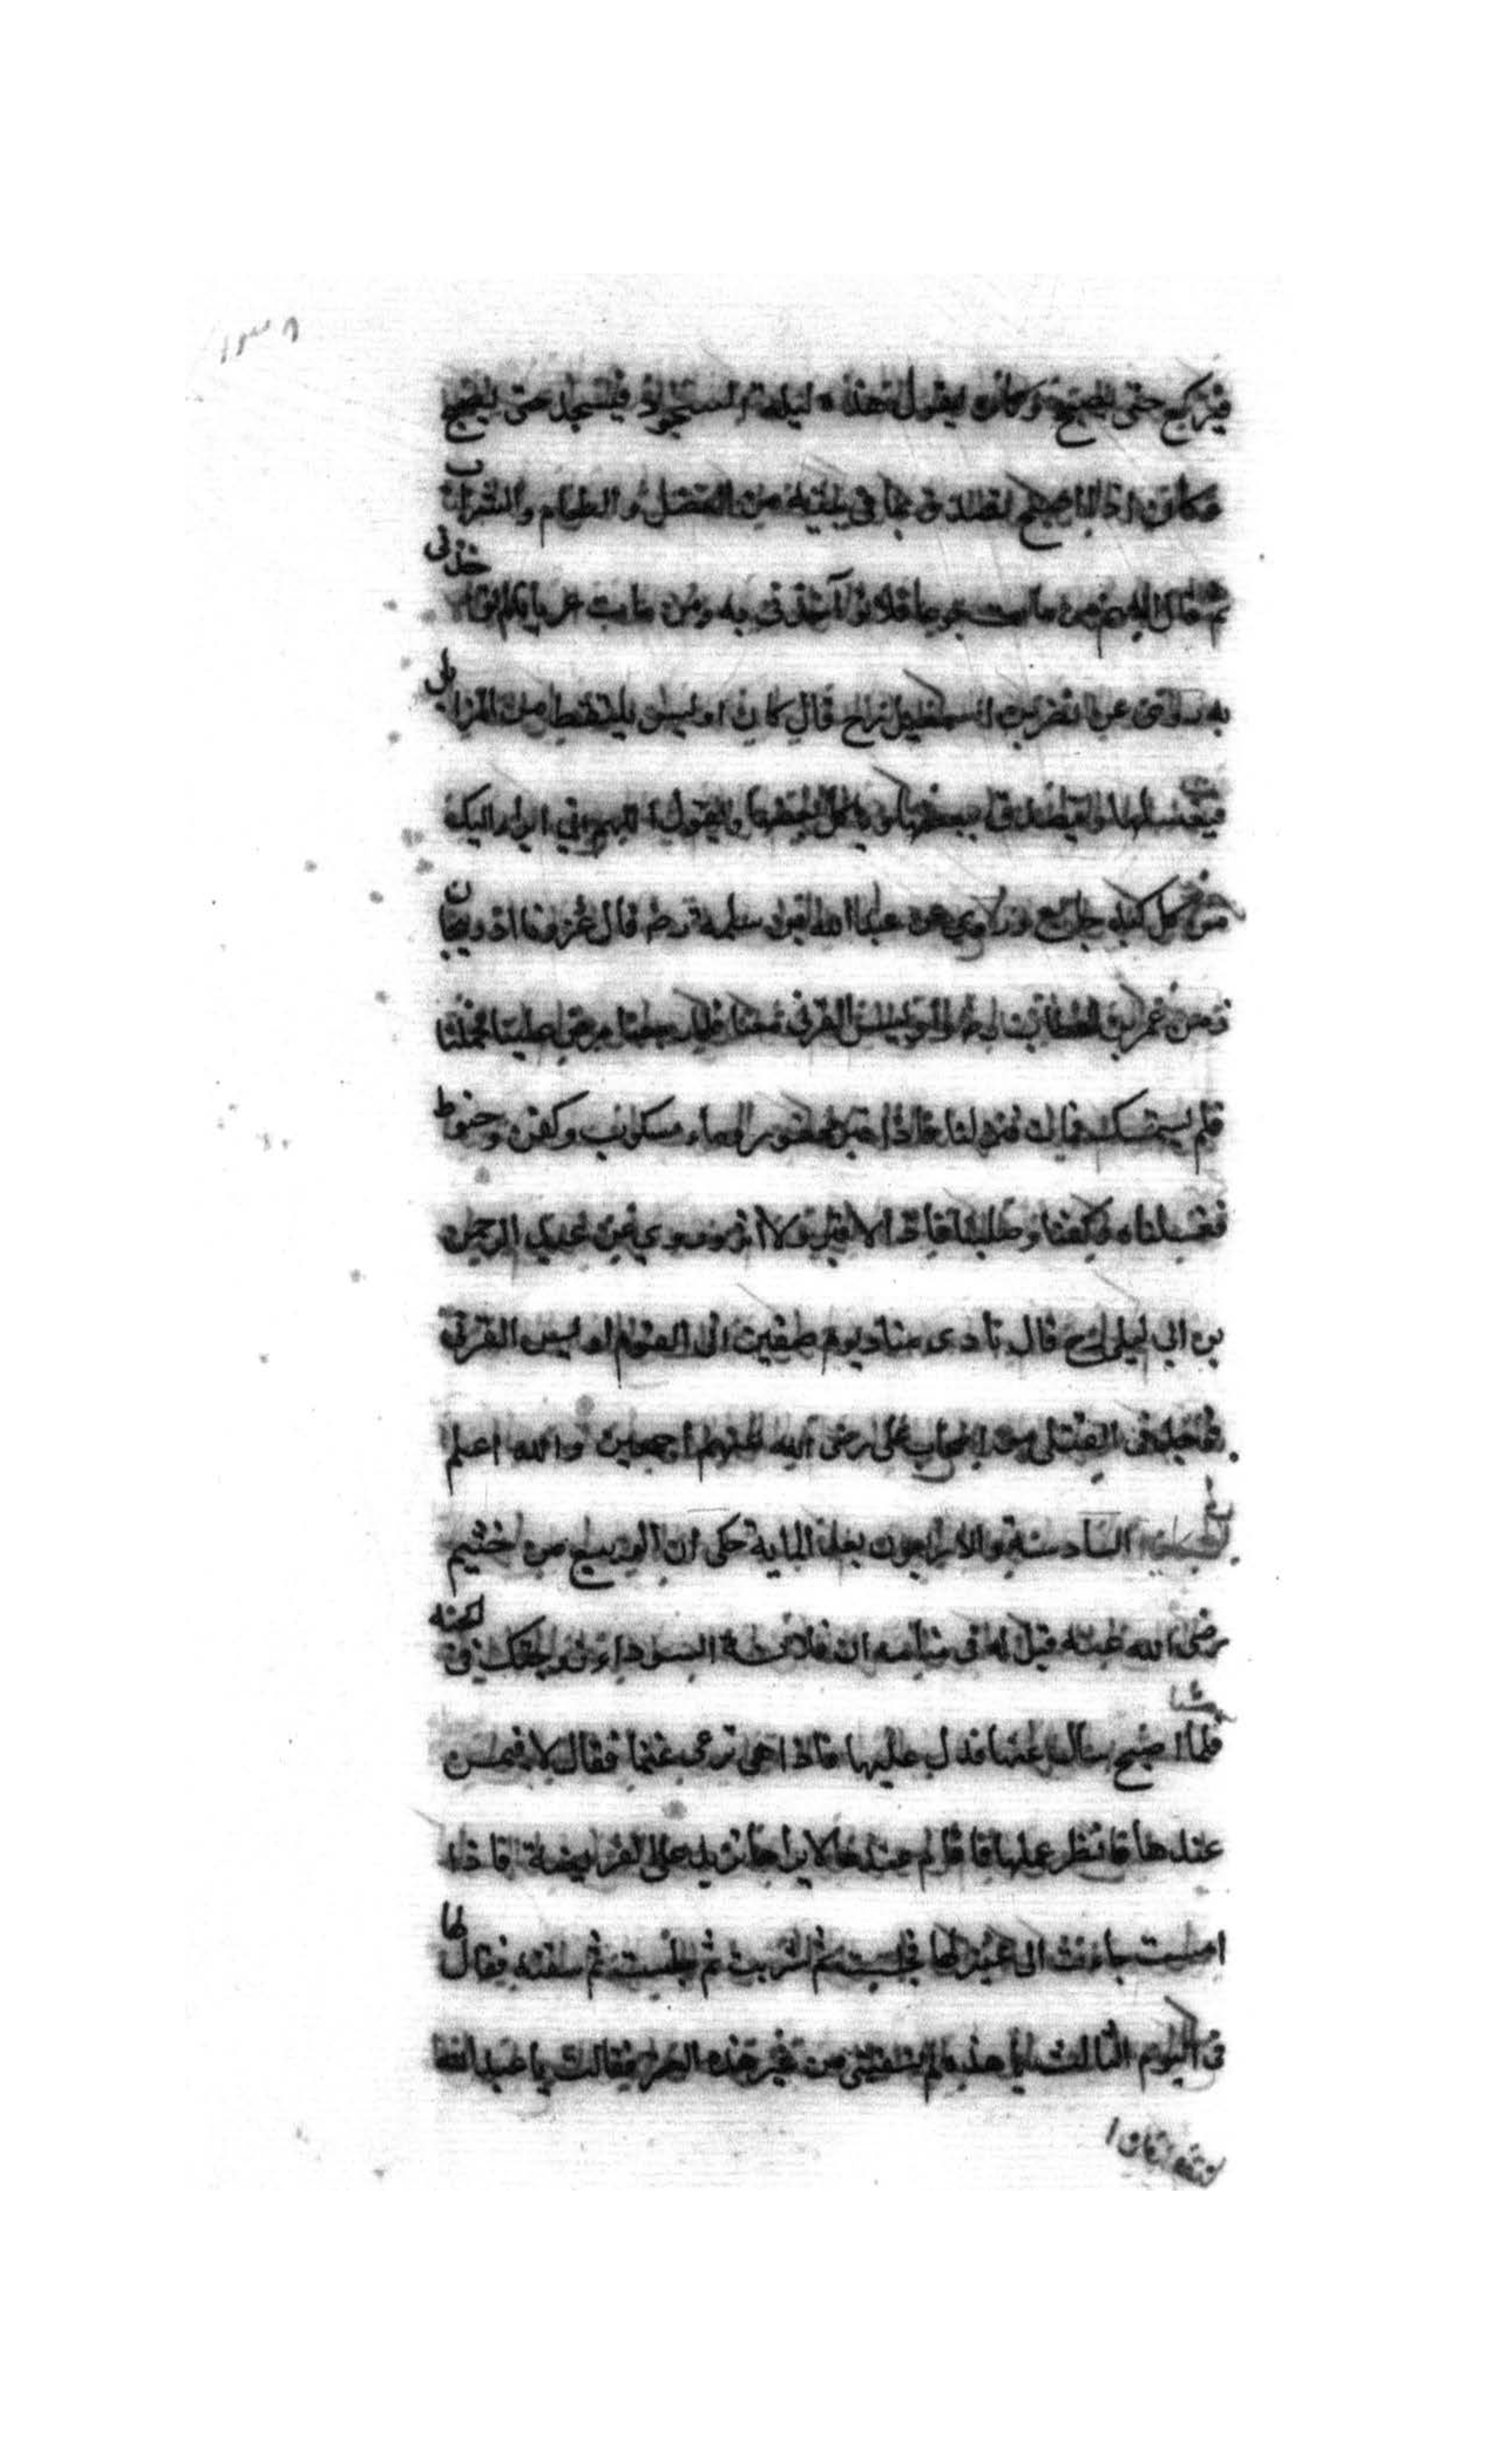 فيركع حتى يصبح وكان يقول هذه ليلة السجود فيسجد حتى يصبح
وكان اذا اصبح تصدق بما في بيته من الفضل والطعام والشراب
ثم قال اللهم من مات جوعا فلا تؤآخذني به ومن مات عريانا فلا تؤاخذني
به روى عن النضر بن اسمعيل رح قال كان اويس يلتقط من المزابل
فيغسلها ويتصدق ببعضها وياكل بعضها ويقول اللهم اني ابراء اليك
من كل كبد جايع وروي عن عبد الله بن سلمة رضه قال غزونا اذربيجان
زمن عمر بن الخطاب رضه واويس القرني معنا فلما رجعنا مرض علينا فحملناه
فلم يستمسك فمات فنزلنا فاذا قبر محفور وماء مسكوب وكفن وحنوط
فغسلناه وكفنا وصلينا فاذا لا قبر ولا اثر وروي عن عبد الرحمن
بن ابي ليلى رح قال نادى مناد يوم صفين افي القوم اويس القرني
فوجد في القتلى من اصحاب علي رضي الله عنهم اجمعين والله اعلم
الحكاية السادسة والاربعون بعد الماية حكي ان الربيع بن خثيم
رضي الله عنه قيل له في منامه ان فلانة السوداء زوجتك في الجنة
فلما اصبح سال عنها فدل عليها فاذا هي ترعى غنما فقال لاقيمن
عندها فانظر عملها فاقام عندها لا يراها تزيد على الفريضة فاذا
امست جاءت الى عنز لها فحلبت ثم شربت ثم حلبت ثم سقته فقال لها
في اليوم الثالث يا هذه لم لا تسقيني من غير هذه العنز فقالت يا عبد الله